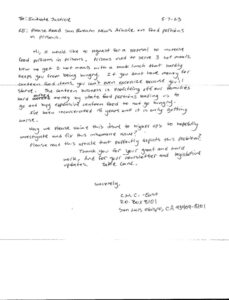 To: Initiate Justice 5-7-23
RE: Please Read San Quentin News's Article on food portions in Prisons.
Hi, I would like to request for a renewal to increase
food portions in Prisons. Prisons used to serve 3 hot meals.
Now we get 2 hot meals with a sack lunch that barely
keeps you from being hungry. If you don't have money for
canteen food items, you can't even exercise because you'll
starve. The canteen business is profiting off our families
hard earned money by state food portions leading us to
go and buy expensive canteen food to not go hungry.
I've been incarcerated 15 years and it is only getting
worse.
May you please voice this issue to higher ups to hopefully
investigate and fix this inhumane issue?
Please read this article that perfectly explains this problem.
Thank you for your good and hard
work, and for your newsletter and legislative
updates. Take care.
Sincerely,
C.M.C. - East
P.O. Box 8101
San Luis Obispo, CA 93409-8101